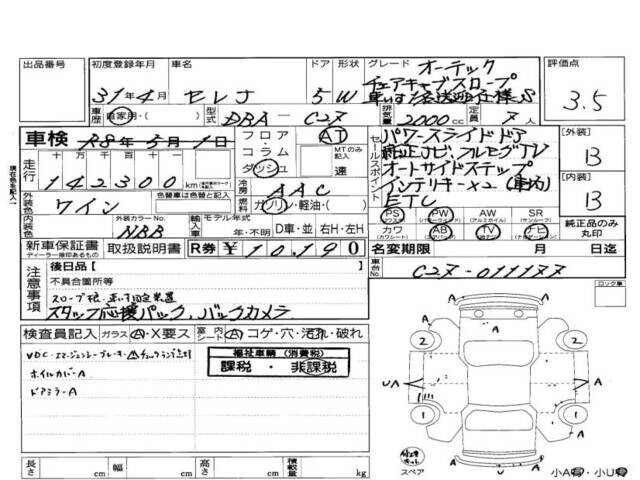 出品番号
初度登録年月 31年4月
車名 セレナ
ドア 5
形状 W
グレード オーテック
チェアキャブスロープ
車いす1名送迎仕様
評価点 3.5
車歴 自家用・( )
型式 DBA - C27
排気量 2000cc
定員 7人
車検 R8年5月1日
走行 十万千百十
142300 km
フロア・コラム・ダッシュ
AT
MTのみ記入
速
セールスポイント
パワースライドドア
純正ナビ・フルセグTV
オートサイドステップ
インテリキー×2(車内)
ETC
[外装] B
[内装] B
外装色 ワイン
色替車は色替と記入
冷房 AAC
燃料 ガソリン・軽油・( )
内装色
外装カラーNo. NBB
輸入車
モデル年式 年・不明
D車・並 右H・左H
PS PW AW SR
(パワステ) (パワーウインド) (アルミホイル) (サンルーフ)
カワ AB TV ナビ
(カワシート) (エアバック) (テレビ) (ナビゲーション)
純正品のみ丸印
新車保証書 取扱説明書
ディーラー捺印あるもの
R券 ¥10,190
名変期限 月 日迄
車台No. C27-011177
注意事項
後日品[ ]
不具合箇所等
スロープ板・車いす固定装置
スタッフ応援パック、バックカメラ
ロック車
検査員記入
ガラス A・X要ス
室内シート A・コゲ・穴・汚れ・破れ
VDC・エマージェンシーブレーキ・チェックランプ点灯
ホイルカバーA
ドアミラーA
福祉車輌 (消費税)
課税 ・ 非課税
2 2
UA A A
1 1
A
U
スペア
小A・小U
長さ cm 幅 cm 高さ cm 積載量 kg